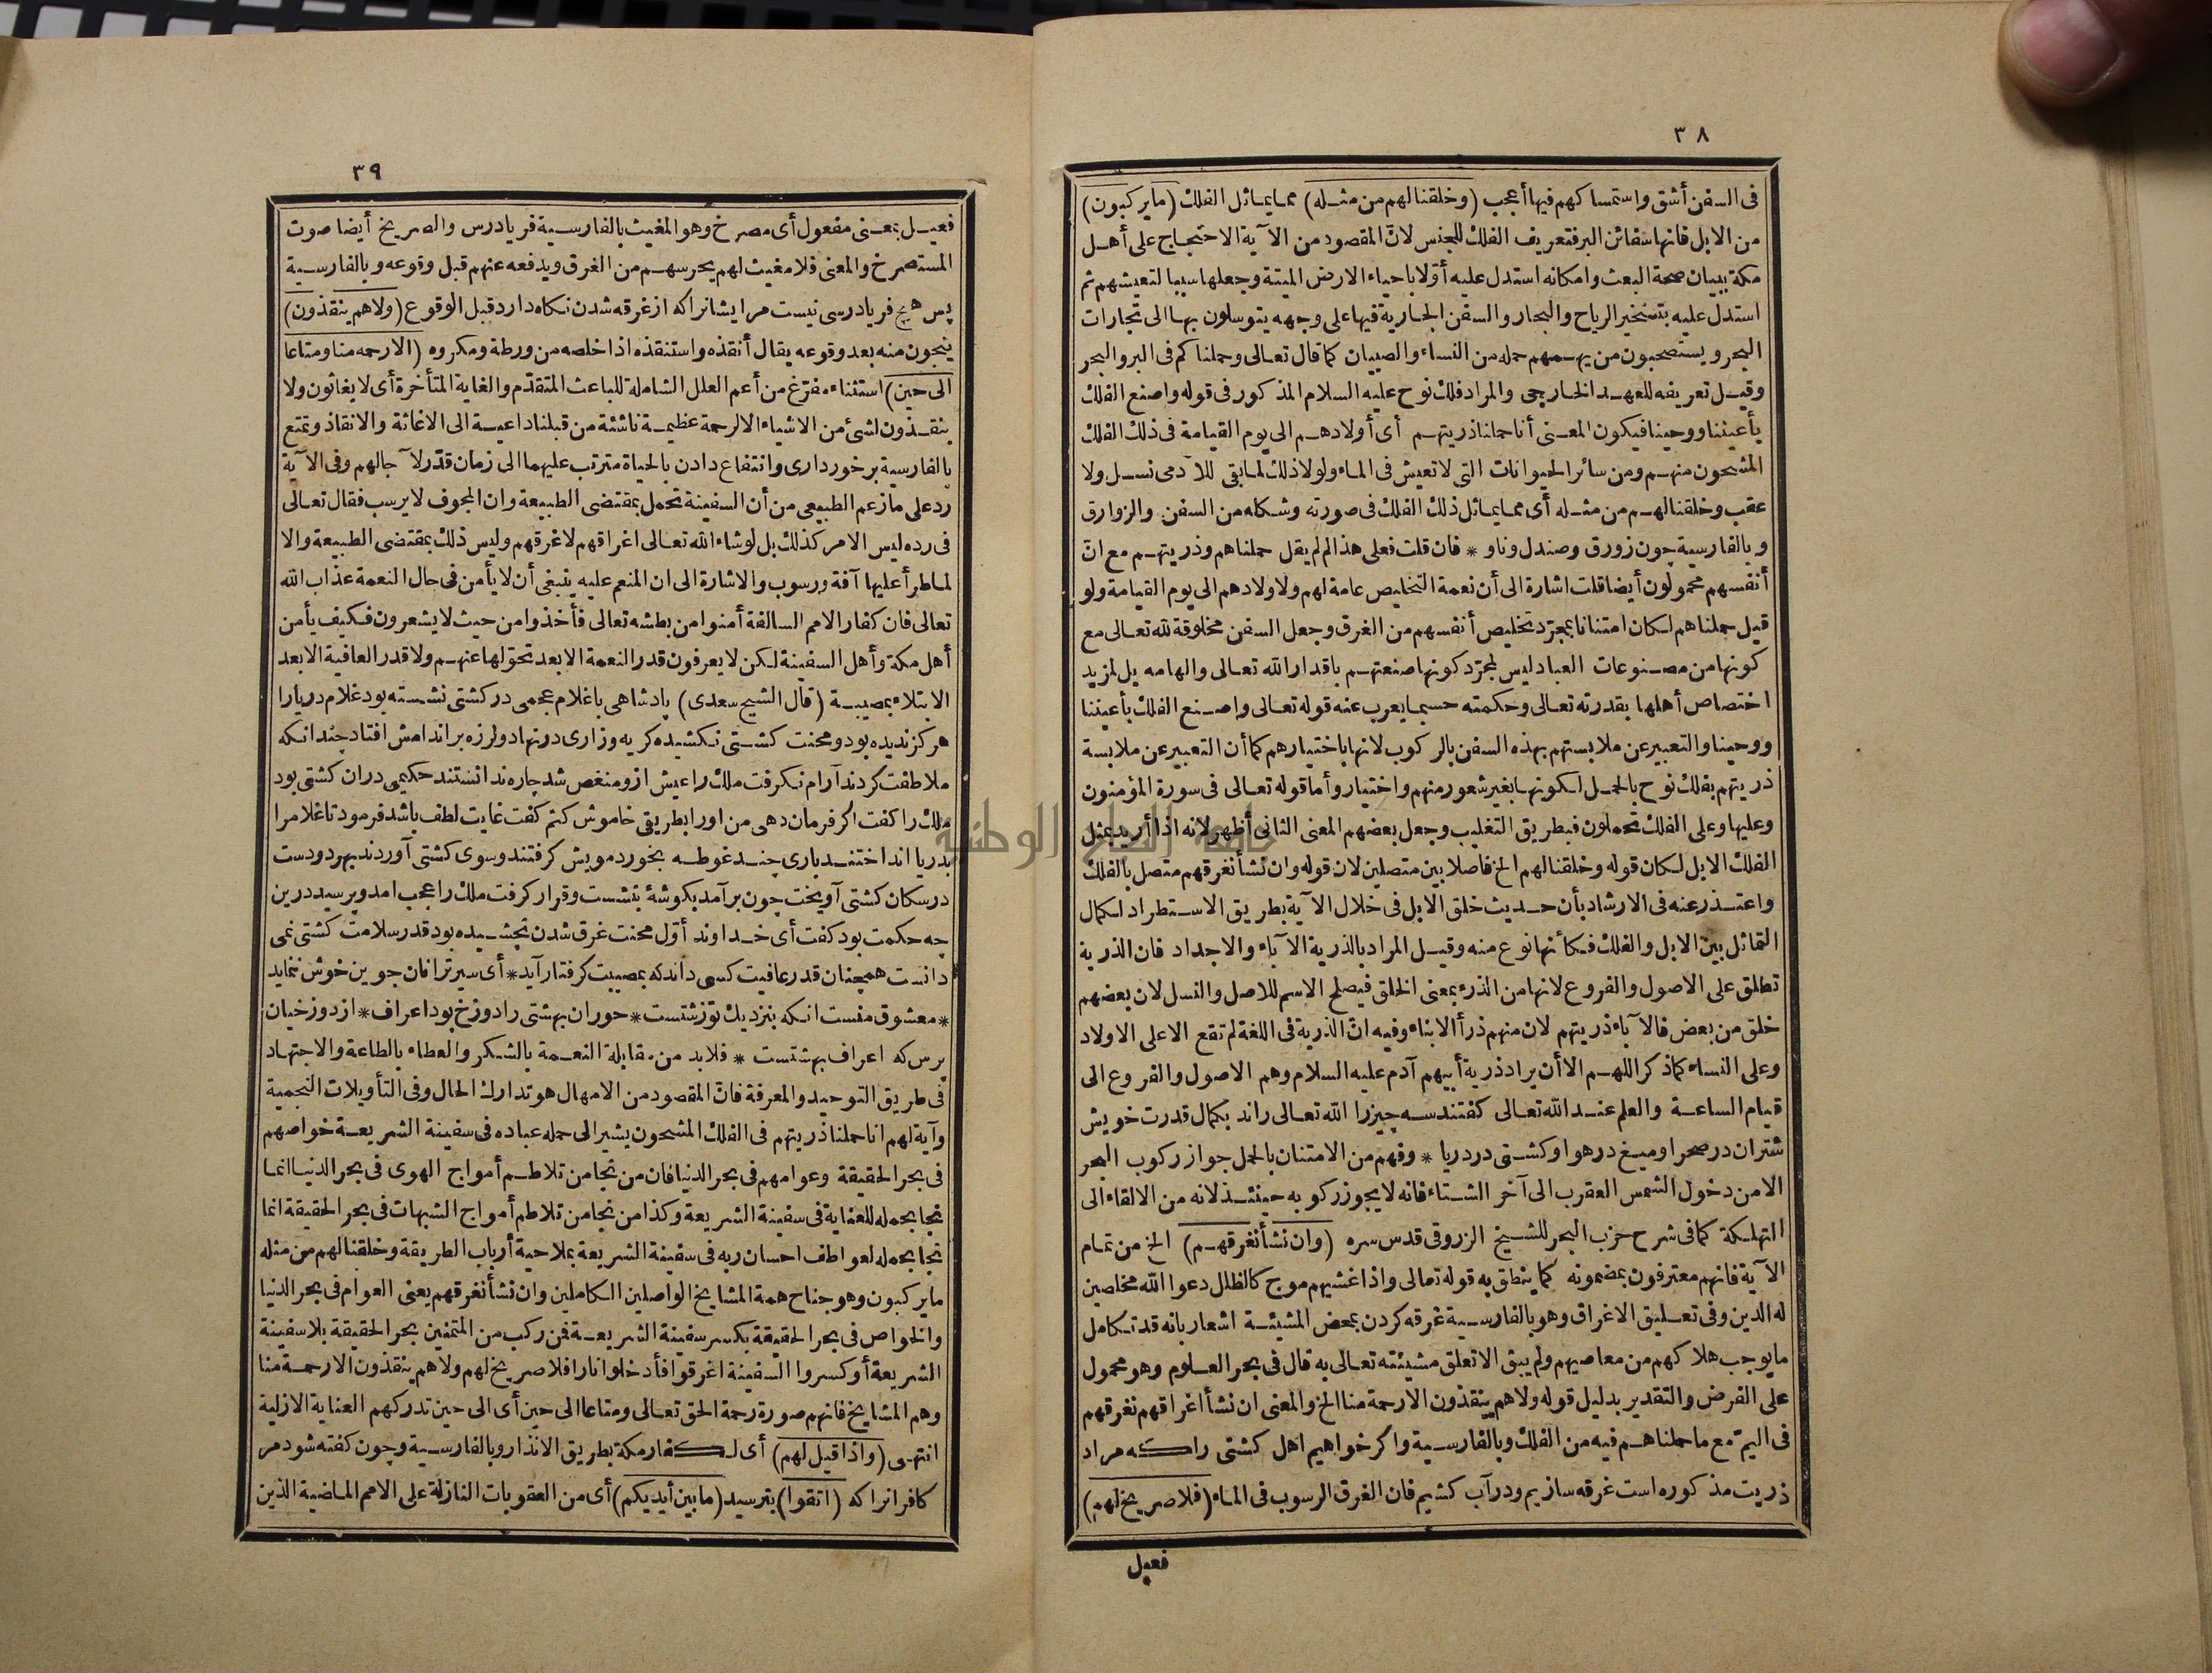 ٣٨
فى السفن أشق واستمساكهم فيها أعجب (وخلقنا لهم من مثله) مما يماثل الفلك (ما يركبون)
من الابل فانها سفائن البر فتعريف الفلك للجنس لانّ المقصود من الآية الاحتجاج على أهل
مكة ببيان صحة البعث وامكانه استدل عليه أوّلا باحياء الارض الميتة وجعلها سببا لتعيشهم ثم
استدل عليه بتسخير الرياح والبحار والسفن الجارية فيها على وجه يتوسلون بها الى تجارات
البحر ويستصحبون من يهمهم حمله من النساء والصبيان كما قال تعالى وحملناكم فى البر والبحر
وقيل تعريفه للعهد الخارجى والمراد فلك نوح عليه السلام المذكور فى قوله واصنع الفلك
بأعيننا ووحينا فيكون المعنى أنا حملنا ذريتهم أى أولادهم الى يوم القيامة فى ذلك الفلك
المشحون منهم ومن سائر الحيوانات التى لا تعيش فى الماء ولولا ذلك لما بقى للآدمى نسل ولا
عقب وخلقنا لهم من مثله أى مما يماثل ذلك الفلك فى صورته وشكله من السفن والزوارق
وبالفارسية چون زورق وصندل وناو * فان قلت فعلى هذا لم لم يقل حملناهم وذريتهم مع انّ
أنفسهم محمولون أيضا قلت اشارة الى أن نعمة التخليص عامة لهم ولاولادهم الى يوم القيامة ولو
قيل حملناهم لكان امتنانا بمجرّد تخليص أنفسهم من الغرق وجعل السفن مخلوقة لله تعالى مع
كونها من مصنوعات العباد ليس لمجرّد كونها صنعتهم باقدار الله تعالى والهامه بل لمزيد
اختصاص أهلها بقدرته تعالى وحكمته حسبما يعرب عنه قوله تعالى واصنع الفلك بأعيننا
ووحينا والتعبير عن ملابستهم بهذه السفن بالركوب لانها باختيارهم كما أن التعبير عن ملابسة
ذريتهم بفلك نوح بالحمل لكونها بغير شعور منهم واختيار وأما قوله تعالى فى سورة المؤمنون
وعليها وعلى الفلك تحملون فبطريق التغليب وجعل بعضهم المعنى الثانى أظهر لانه اذا أريد بمثل
الفلك الابل لكان قوله وخلقنا لهم الخ فاصلا بين متصلين لان قوله وان نشأ نغرقهم متصل بالفلك
واعتذر عنه فى الارشاد بأن حديث خلق الابل فى خلال الآية بطريق الاستطراد لكمال
التماثل بين الابل والفلك فكأنها نوع منه وقيل المراد بالذرية الآباء والاجداد فان الذرية
تطلق على الاصول والفروع لانها من الذرء بمعنى الخلق فيصلح الاسم للاصل والنسل لان بعضهم
خلق من بعض فالآباء ذريتهم لان منهم ذرأ الابناء وفيه انّ الذرية فى اللغة لم تقع الا على الاولاد
وعلى النساء كما ذكر اللهم الا أن يراد ذرية أبيهم آدم عليه السلام وهم الاصول والفروع الى
قيام الساعة والعلم عند الله تعالى كفتند سه چيزرا الله تعالى راند بكمال قدرت خويش
شتران در صحرا وميغ در هوا وكشتى در دريا * وفهم من الامتنان بالحمل جواز ركوب البحر
الا من دخول الشمس العقرب الى آخر الشتاء فانه لا يجوز ركوبه حينئذ لانه من الالقاء الى
التهلكة كما فى شرح حزب البحر للشيخ الزروقى قدس سره (وان نشأ نغرقهم) الخ من تمام
الآية فانهم معترفون بمضمونه كما ينطق به قوله تعالى واذا غشيهم موج كالظلل دعوا الله مخلصين
له الدين وفى تعليق الاغراق وهو بالفارسية غرقه كردن بمعض المشيئة اشعار بانه قد تكامل
ما يوجب هلاكهم من معاصيهم ولم يبق الا تعلق مشيئته تعالى به قال فى بحر العلوم وهو محمول
على الفرض والتقدير بدليل قوله ولا هم ينقذون الا رحمة منا الخ والمعنى ان نشأ اغراقهم نغرقهم
فى اليمّ مع ما حملناهم فيه من الفلك وبالفارسية واكر خواهيم اهل كشتى راكه مراد
ذريت مذكوره است غرقه سازيم ودرآب كشيم فان الغرق الرسوب فى الماء (فلا صريخ لهم)
فعيل
٣٩
فعيل بمعنى مفعول أى مصرخ وهو المغيث بالفارسية فريادرس والصريخ أيضا صوت
المستصرخ والمعنى فلا مغيث لهم يحرسهم من الغرق ويدفعه عنهم قبل وقوعه وبالفارسية
پس هيچ فريادرسى نيست مرايشانرا كه از غرقه شدن نكاه دارد قبل الوقوع (ولا هم ينقذون)
ينجون منه بعد وقوعه يقال أنقذه واستنقذه اذا خلصه من ورطة ومكروه (الا رحمة منا ومتاعا
الى حين) استثناء مفرّغ من أعم العلل الشاملة للباعث المتقدّم والغاية المتأخرة أى لا يغاثون ولا
ينقذون لشئ من الاشياء الا لرحمة عظيمة ناشئة من قبلنا داعية الى الاغاثة والانقاذ وتمتع
بالفارسية برخوردارى وانتفاع دادن بالحياة مترتب عليهما الى زمان قدّر لآجالهم وفى الآية
ردّ على ما زعم الطبيعى من أن السفينة تحمل بمقتضى الطبيعة وان المجوف لا يرسب فقال تعالى
فى رده ليس الامر كذلك بل لو شاء الله تعالى اغراقهم لاغرقهم وليس ذلك بمقتضى الطبيعة والا
لما طرأ عليها آفة ورسوب والاشارة الى ان المنعم عليه ينبغى أن لا يأمن فى حال النعمة عذاب الله
تعالى فان كفار الامم السالفة أمنوا من بطشه تعالى فأخذوا من حيث لا يشعرون فكيف يأمن
أهل مكة وأهل السفينة لكن لا يعرفون قدر النعمة الا بعد تحوّلها عنهم ولا قدر العافية الا بعد
الابتلاء بمصيبة (قال الشيخ سعدى) پادشاهى با غلام عجمى در كشتى نشسته بود غلام دريارا
هركز نديده بود ومحنت كشتى نكشيده كريه وزارى درنهاد ولرزه براندامش افتاد چندانكه
ملاطفت كردند آرام نكرفت ملك را عيش ازو منغص شد چاره ندانستند حكيمى دران كشتى بود
ملك را كفت اكر فرمان دهى من اورا بطريقى خاموش كنم كفت غايت لطف باشد فرمود تا غلام را
بدريا انداختند بارى چند غوطه بخورد مويش كرفتند وسوى كشتى آوردند بهر دو دست
درسكان كشتى آويخت چون برآمد بكوشهٔ بنشست وقرار كرفت ملك را عجب امد وپرسيد درين
چه حكمت بود كفت أى خداوند أوّل محنت غرق شدن نچشيده بود قدر سلامت كشتى نمى
دانست همچنان قدر عافيت كسى داند كه بمصيبت كرفتار آيد * أى سير ترا نان جوين خوش ننمايد
* معشوق منست انكه بنزديك تو زشتست * حوران بهشتى را دوزخ بود اعراف * از دوزخيان
پرس كه اعراف بهشتست * فلا بد من مقابلة النعمة بالشكر والعطاء بالطاعة والاجتهاد
فى طريق التوحيد والمعرفة فانّ المقصود من الامهال هو تدارك الحال وفى التأويلات النجمية
وآية لهم انا حملنا ذريتهم فى الفلك المشحون يشير الى حمله عباده فى سفينة الشريعة خواصهم
فى بحر الحقيقة وعوامهم فى بحر الدنيا فان من نجا من تلاطم أمواج الهوى فى بحر الدنيا انما
نجا بحمله للعناية فى سفينة الشريعة وكذا من نجا من تلاطم أمواج الشبهات فى بحر الحقيقة انما
نجا بحمله لعواطف احسان ربه فى سفينة الشريعة بملاحية أرباب الطريقة وخلقنا لهم من مثله
ما يركبون وهو جناح همة المشايخ الواصلين الكاملين وان نشأ نغرقهم يعنى العوام فى بحر الدنيا
والخواص فى بحر الحقيقة بكسر سفينة الشريعة فمن ركب من المتمنين بحر الحقيقة بلا سفينة
الشريعة أو كسروا السفينة اغرقوا فأدخلوا نارا فلا صريخ لهم ولا هم ينقذون الا رحمة منا
وهم المشايخ فانهم صورة رحمة الحق تعالى ومتاعا الى حين أى الى حين تدركهم العناية الازلية
انتهى (واذا قيل لهم) أى لكفار مكة بطريق الانذار وبالفارسية وچون كفته شود مر
كافرانرا كه (اتقوا) بترسيد (ما بين أيديكم) أى من العقوبات النازلة على الامم الماضية الذين
جامعة النجاح الوطنية